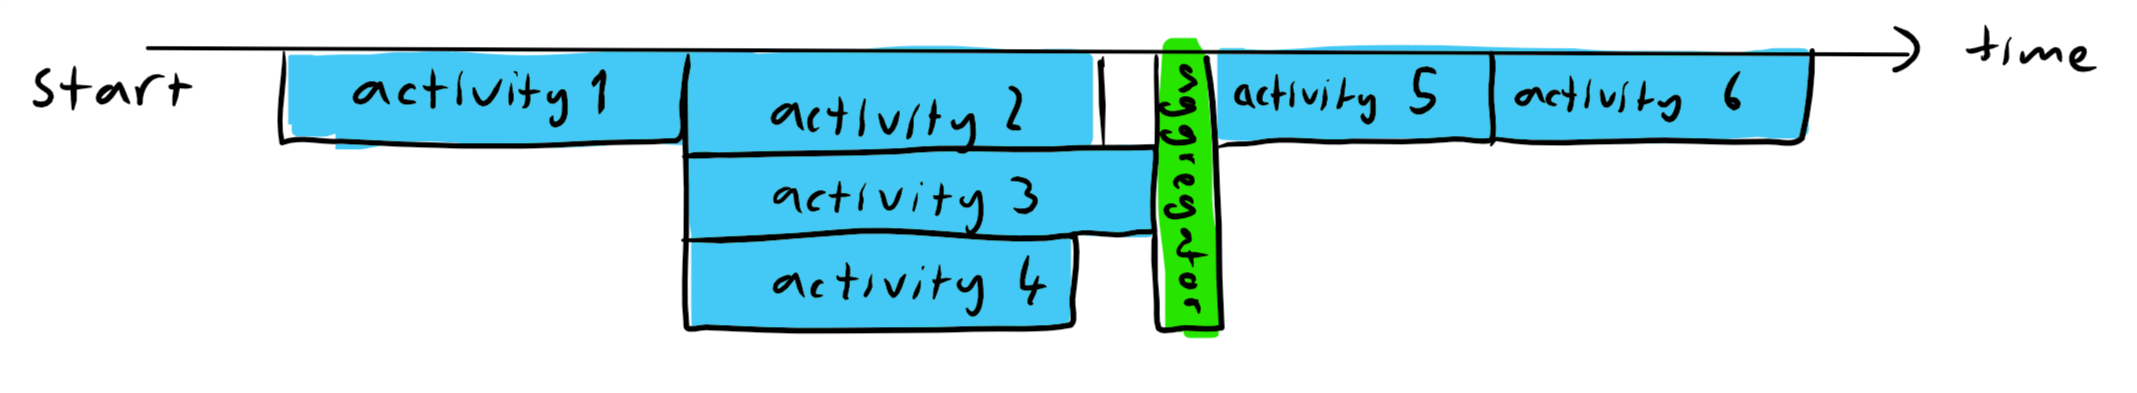 start
activity 1
activity 2
activity 3
activity 4
aggregator
activity 5
activity 6
time